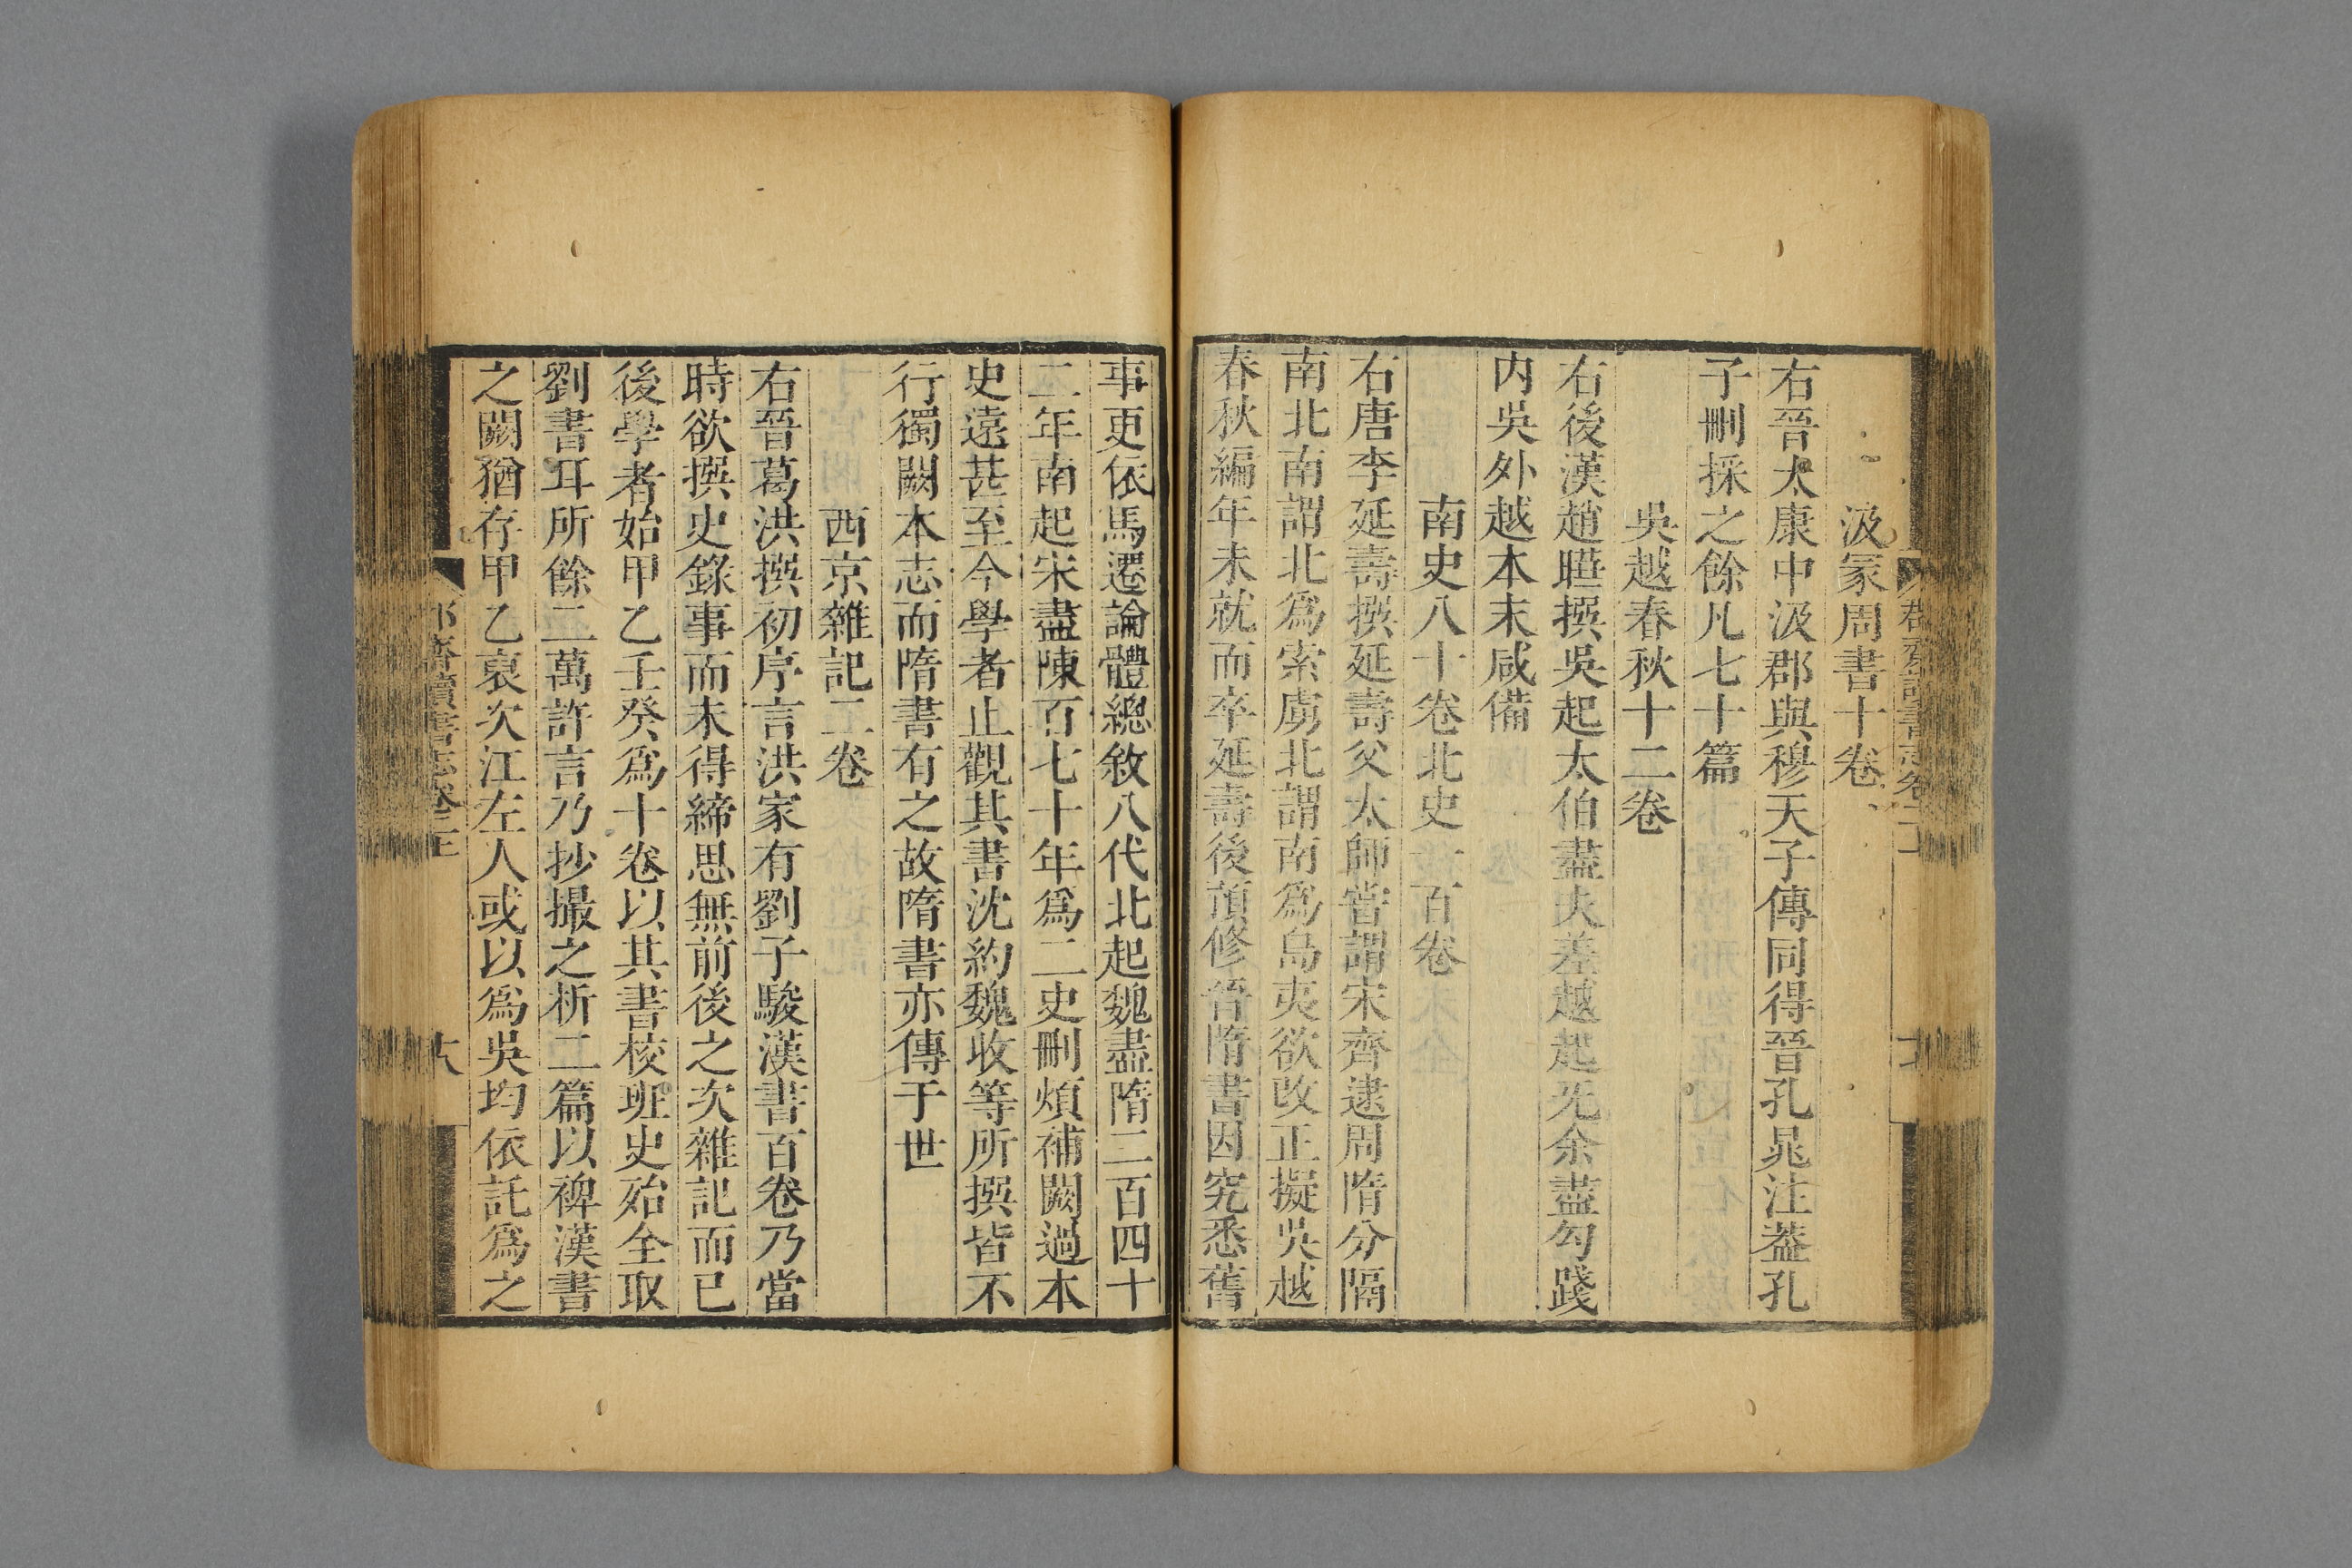 汲冢周書十卷
右晉太康中汲郡與穆天子傳同得晉孔晁注葢孔
子刪採之餘凡七十篇
吳越春秋十二卷
右後漢趙曄撰吳起太伯盡夫差越起无余盡勾踐
内吳外越本末咸備
南史八十卷北史一百卷
右唐李延壽撰延壽父太師嘗謂宋齊逮周隋分隔
南北南謂北爲索虜北謂南爲島夷欲改正擬吳越
春秋編年未就而卒延壽後預修晉隋書因究悉舊
事更依馬遷論體總敘八代北起魏盡隋二百四十
二年南起宋盡陳百七十年爲二史刪煩補闕過本
史遠甚至今學者止觀其書沈約魏收等所撰皆不
行獨闕本志而隋書有之故隋書亦傳于世
西京雜記二卷
右晉葛洪撰初序言洪家有劉子駿漢書百卷乃當
時欲撰史錄事而未得締思無前後之次雜記而已
後學者始甲乙壬癸爲十卷以其書校班史殆全取
劉書耳所餘二萬許言乃抄撮之析二篇以裨漢書
之闕猶存甲乙裒次江左人或以爲吳均依託爲之
郡齋讀書志卷二上
六